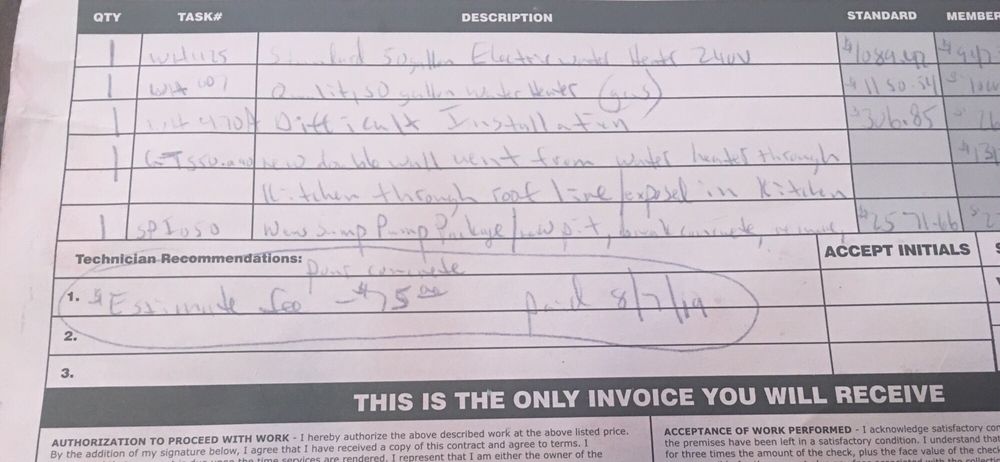 QTY TASK# DESCRIPTION STANDARD MEMBER
1 WH1125 Standard 50 gallon Electric water Heater 240V $1089.42 $947
1 WH 607 Quality 50 gallon water Heater (gas) $1150.54 $100
1 WH470A Difficult Installation $306.85 $26
1 new double wall vent from water heater through $131
Kitchen through roof line/exposed in Kitchen
1 SPI050 New sump Pump Package/new pit, break concrete, remove, $2571.66 $2
pour concrete
Technician Recommendations: ACCEPT INITIALS
1. $ Estimate fee - $75.00 paid 8/7/19
2.
3.
THIS IS THE ONLY INVOICE YOU WILL RECEIVE
AUTHORIZATION TO PROCEED WITH WORK - I hereby authorize the above described work at the above listed price. ACCEPTANCE OF WORK PERFORMED - I acknowledge satisfactory
By the addition of my signature below, I agree that I have received a copy of this contract and agree to terms. I the premises have been left in a satisfactory condition. I understand that
the time services are rendered. I represent that I am either the owner of the for three times the amount of the check, plus the face value of the check